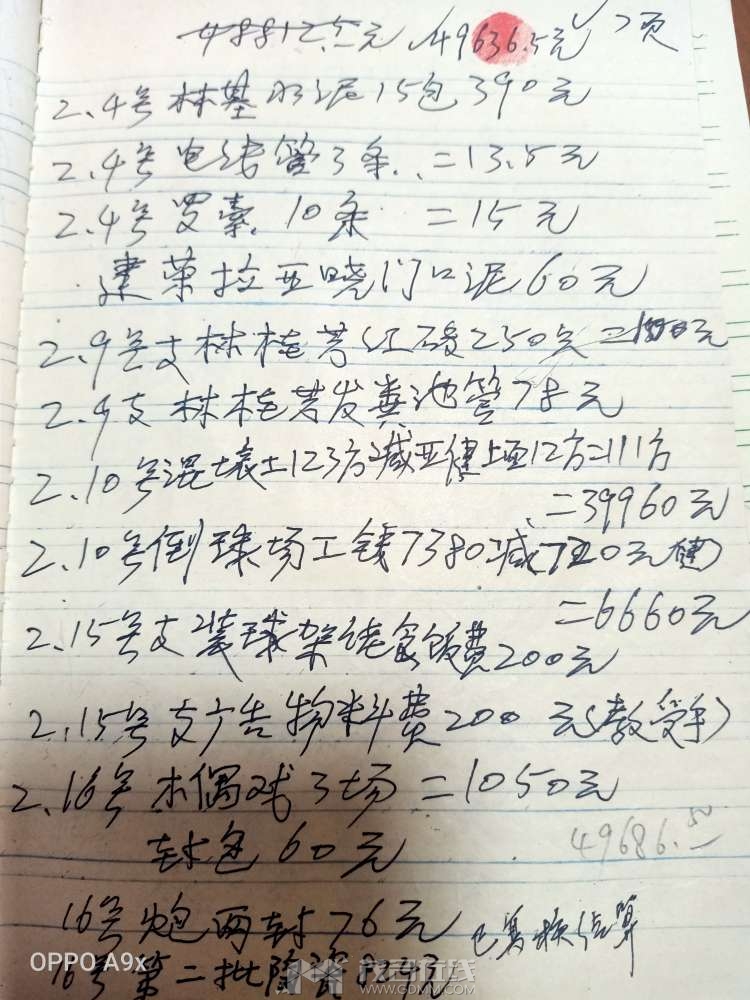 48812.5元 49636.5元 7页
2.4号林基水泥15包390元
2.4号电线管3条.=13.5元
2.4号罗索.10条 =15元
建荣拉亚晓门口泥60元
2.9号支林桂芳红砖250块=元
2.9支林桂芳发粪池管78元
2.10号混壤土123方减亚健上面12方=111方
=39960元
2.10号倒球场工钱7380减720元(健)
=6660元
2.15号支装球架食饭费200元
2.15号支广告物料费200元(教受手)
2.16号木偶戏3场=1050元
封包60元
49686.50
16号炮两封76元 已结算
16号第二批陶瓷804元
OPPO A9x
茂名在线
WWW.GDMM.COM